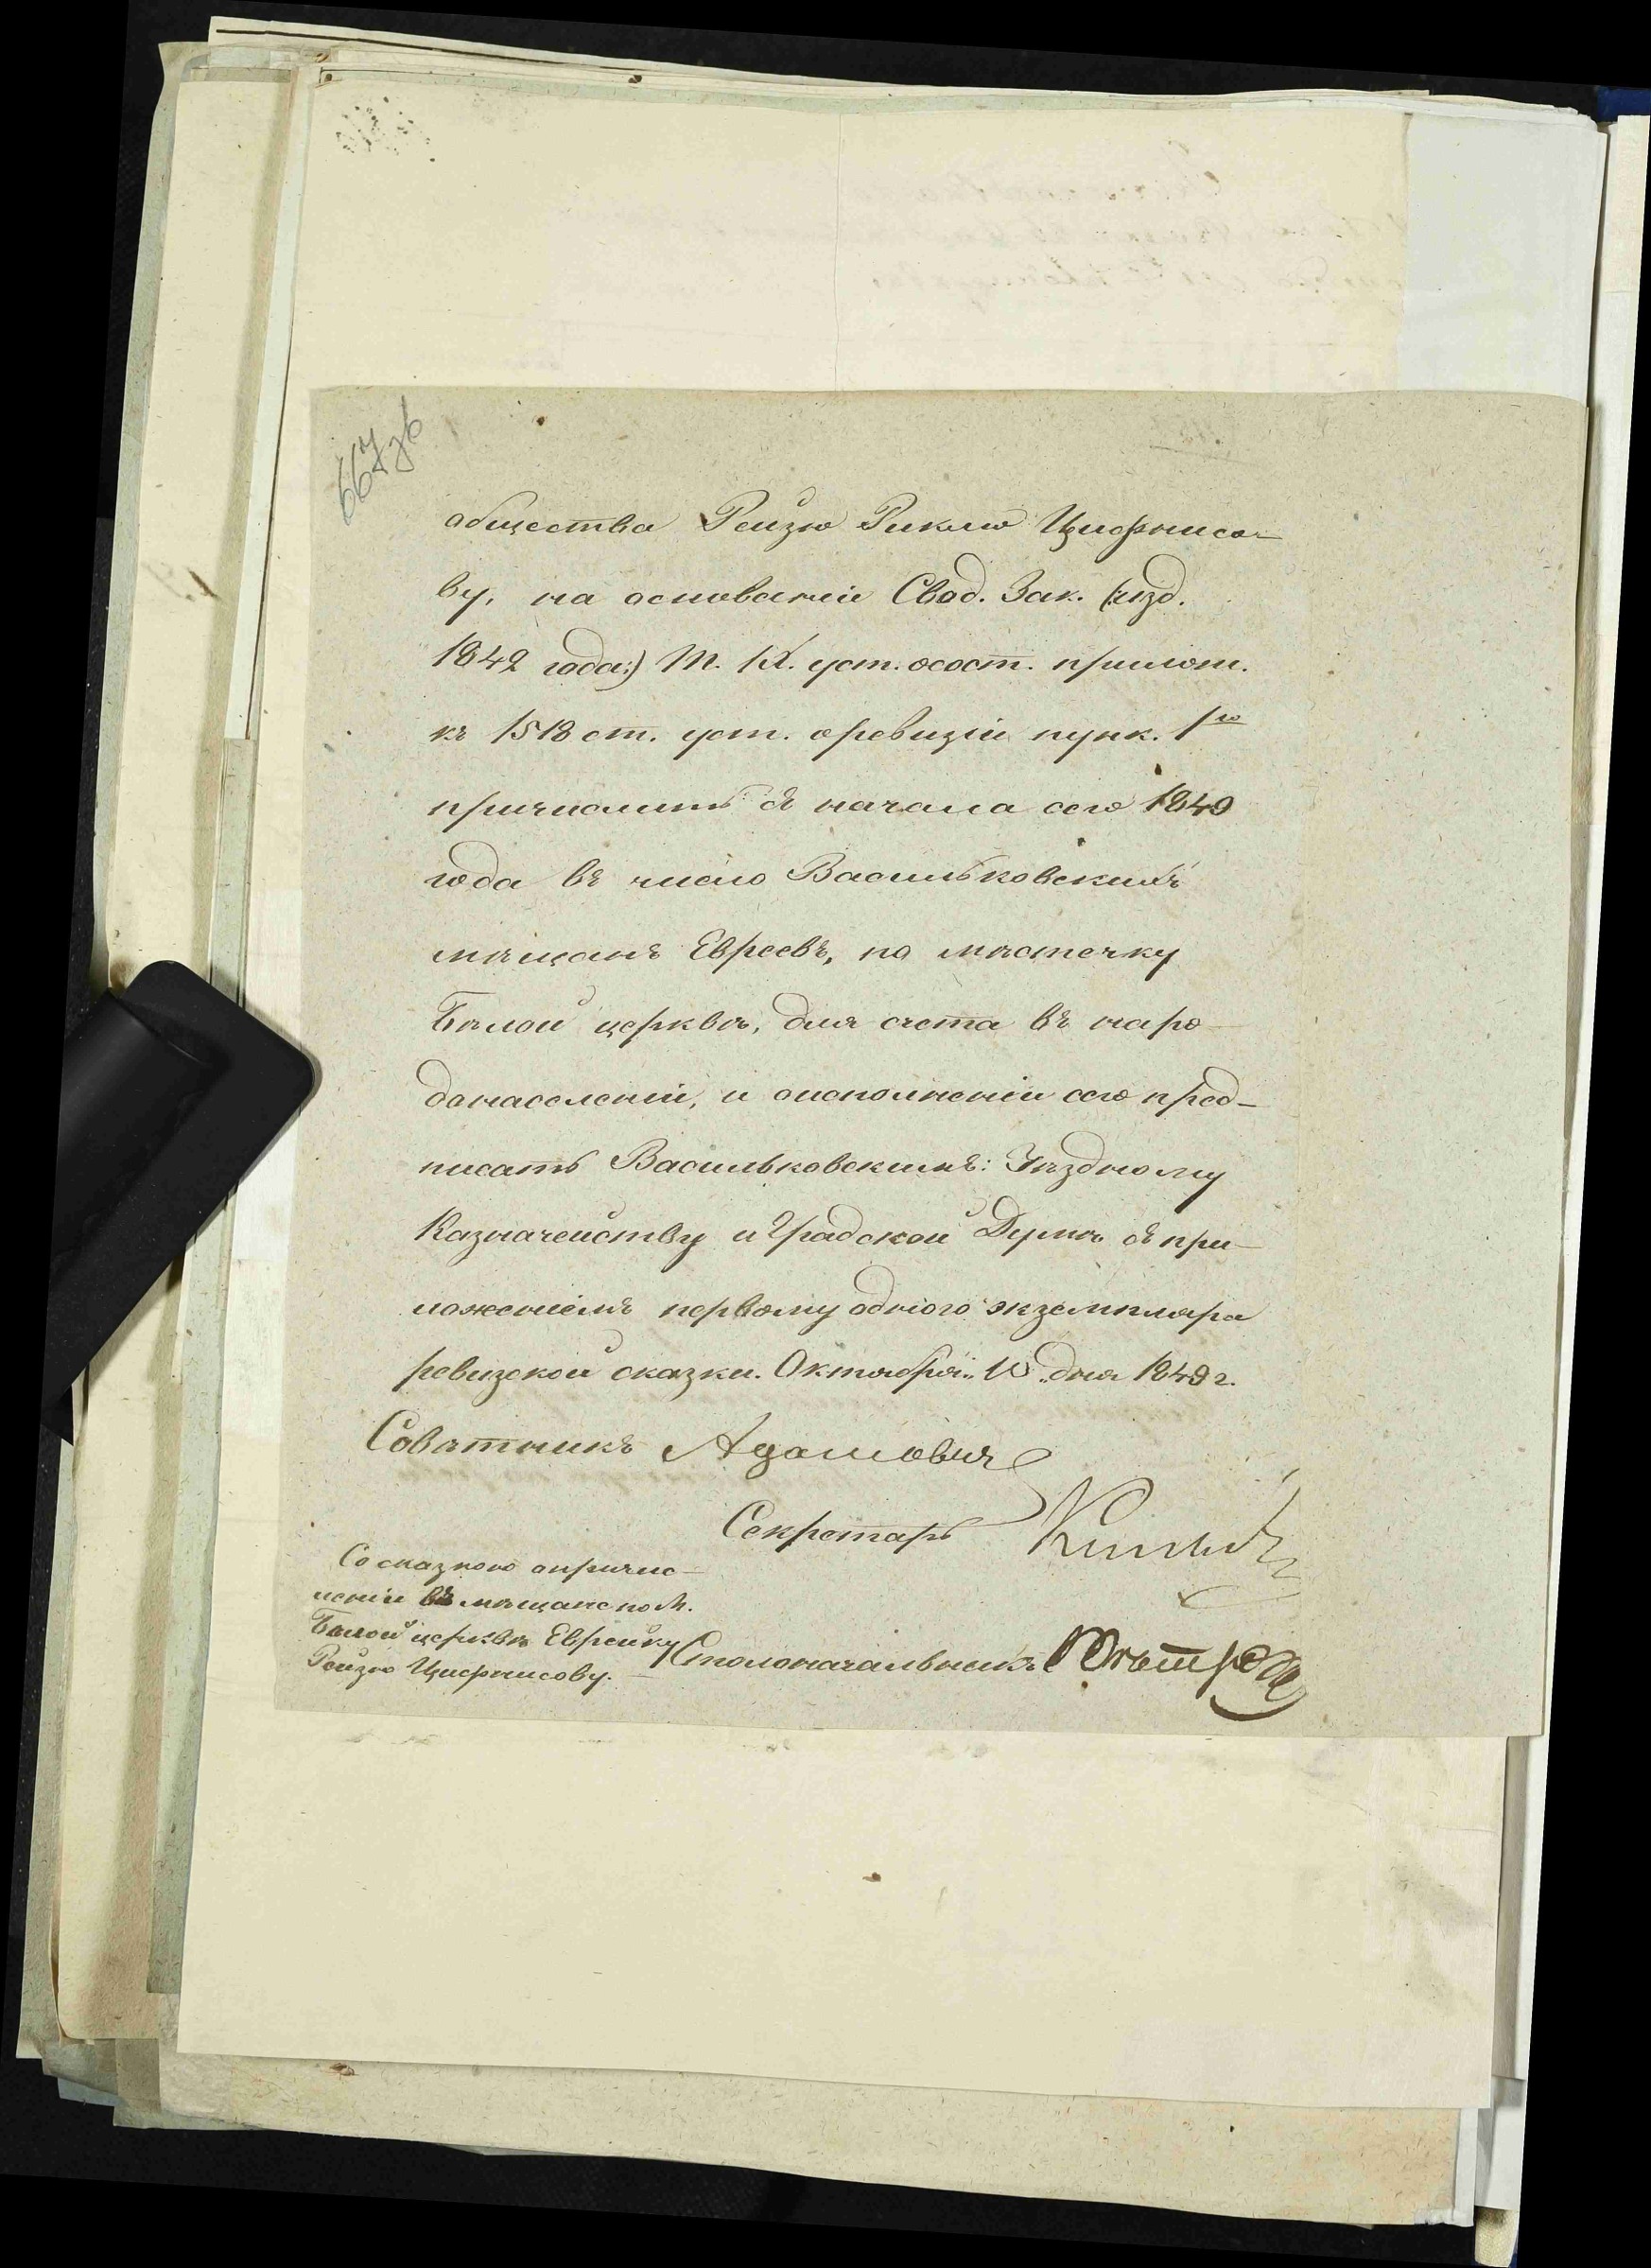 667зв
общества Рейзю Риклю Цифрисо-
ву, на основаніи Свод. Зак. (:изд.
1842 года:) Т. IX. уст. осост. прилож.
къ 1518 ст. уст. оревизіи пунк. 1го
причислить съ начала сего 1849
года въ число Васильковскихъ
мѣщанъ Евреевъ, по мѣстечку
Бѣлой церквѣ, для счета въ наро-
донаселеніи, и оисполненіи сего пред-
писать Васильковскимъ: Уѣздному
Казначейству и Градской Думѣ съ при-
ложеніемъ первому одного экземпляра
ревизской сказки. Октября „10„ дня 1849 г.
Совѣтникъ Адамович
Секретарь
Со сказкою опричис-
леніи въ мѣщане по М.
Бѣлой церквѣ Еврейку
Рейзю Цифрисову.
Столоначальникъ